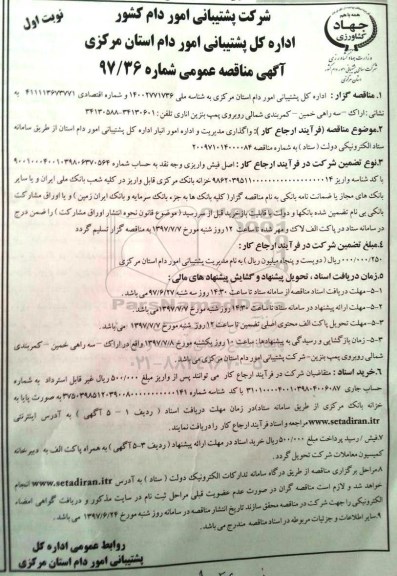 نوبت اول
جهاد کشاورزی
شرکت پشتیبانی امور دام کشور
اداره کل پشتیبانی امور دام استان مرکزی
آگهی مناقصه عمومی شماره ۹۷/۳۶
۱. مناقصه گزار: اداره کل پشتیبانی امور دام استان مرکزی به شناسه ملی ۱۴۰۰۲۷۷۱۷۳۶ و شماره اقتصادی ۴۱۱۱۱۳۶۷۳۷۷۱
نشانی: اراک – سه راهی خمین – کمربندی شمالی روبروی پمپ بنزین اناری تلفن: ۳۴۱۳۰۶۰۱-۳۴۱۳۰۵۸۸
۲. موضوع مناقصه (فرآیند ارجاع کار): واگذاری مدیریت و اداره امور انبار اداره کل پشتیبانی امور دام استان از طریق سامانه
ستاد الکترونیکی دولت (ستاد) به شماره سامانه ۲۰۰۹۷۱۰۱۴۰۰۰۰۸۴
۳. نوع تضمین شرکت در فرآیند ارجاع کار: اصل فیش واریزی وجه نقد به حساب شماره
با کد شناسه واریز خزانه بانک مرکزی قابل واریز در کلیه شعب بانک ملی ایران و یا سایر
بانک های مجاز یا ضمانت نامه بانکی به نام مناقصه گزار (کلیه بانک ها به جزء بانک سرمایه و بانک ایران زمین) و یا اوراق مشارکت
بانکی بی نام تضمین شده بانکها و دولت با قابلیت بازخرید قبل از سررسید (موضوع قانون نحوه انتشار اوراق مشارکت) را ضمن درج
در سامانه ستاد در پاکت الف لاک و مهر شده تا ساعت ۱۲ روز شنبه مورخ ۱۳۹۷/۷/۷ به مناقصه گزار تسلیم گردد
۴. مبلغ تضمین شرکت در فرآیند ارجاع کار:
۲۵۰/۰۰۰/۰۰۰ ریال (دویست و پنجاه میلیون ریال) به نام مدیریت پشتیبانی امور دام استان مرکزی
۵. زمان دریافت اسناد، تحویل پیشنهاد و گشایش پیشنهاد های مالی:
۱-۵- مهلت دریافت اسناد مناقصه از سامانه ستاد تا ساعت ۱۴:۳۰ روز سه شنبه ۹۷/۶/۲۷ می باشد.
۲-۵- مهلت ارائه پیشنهاد در سامانه ستاد تا ساعت ۱۴:۳۰ روز شنبه مورخ ۱۳۹۷/۷/۷ می باشد.
۳-۵- مهلت تحویل پاکت الف محتوی اصلی تضمین تا ساعت ۱۲ روز شنبه مورخ ۱۳۹۷/۷/۷ می باشد.
۴-۵- زمان بازگشایی و رسیدگی به پیشنهادها: ساعت ۱۰ روز یکشنبه مورخ ۱۳۹۷/۷/۸ واقع در اراک – سه راهی خمین – کمربندی
شمالی روبروی پمپ بنزین- شرکت پشتیبانی امور دام استان مرکزی می باشد.
۶. خرید اسناد: متقاضیان شرکت در فرآیند ارجاع کار می توانند پس از واریز مبلغ ۵۰۰/۰۰۰ ریال غیر قابل استرداد به شماره
حساب جاری با کد شناسه شماره به صورت پایا به
خزانه بانک مرکزی از طریق سامانه ستاد) در زمان مهلت دریافت اسناد (ردیف ۱ – ۵ آگهی) به آدرس اینترنتی
www.setadiran.itr مراجعه و اسناد فرآیند ارجاع کار را دریافت نمایند.
۷. فیش / رسید پرداخت مبلغ ۵۰۰/۰۰۰ ریال خرید اسناد در مهلت ارائه پیشنهاد (ردیف ۳-۵ آگهی) به همراه پاکت الف به دبیرخانه
کمیسیون معاملات شرکت تحویل گردد.
۸. مراحل برگزاری مناقصه از طریق درگاه سامانه تدارکات الکترونیک دولت (ستاد) به آدرس www.setadiran.itr انجام
خواهد شد و لازم است مناقصه گران در صورت عدم عضویت قبلی مراحل ثبت نام در سایت مذکور و دریافت گواهی امضاء
الکترونیکی را جهت شرکت در مناقصه محقق سازند تاریخ انتشار مناقصه در سامانه روز شنبه مورخ ۱۳۹۷/۶/۲۴ می باشد.
۹. سایر اطلاعات و جزئیات مربوطه در اسناد مناقصه مندرج می باشد.
روابط عمومی اداره کل
پشتیبانی امور دام استان مرکزی